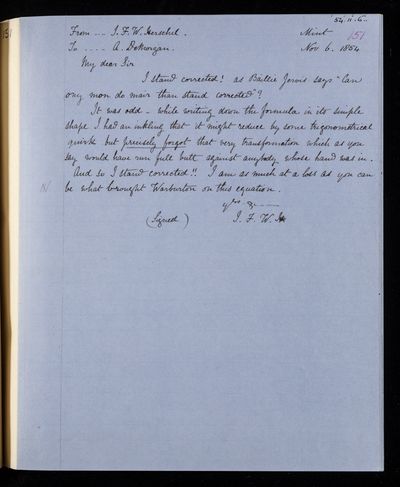 54.11.6.
151
From -- J. F. W. Herschel. Mint 151
To ---- A. DeMorgan. Nov. 6. 1854
My dear Sir
I stand corrected! as Ballie Jarvis says "Can
ony mon do mair than stand corrected"?
It was odd - while writing down the formula in its simple
shape I had an inkling that it might reduce by some trigonometrical
quirk but precisely forgot that very transformation which as you
say would have run full butt against anybody whose hand was in.
And so I stand corrected!! I am as much at a loss as you can
N/ be what brought Warburton on this equation.
yrs &----
(Signed) J. F. W. H